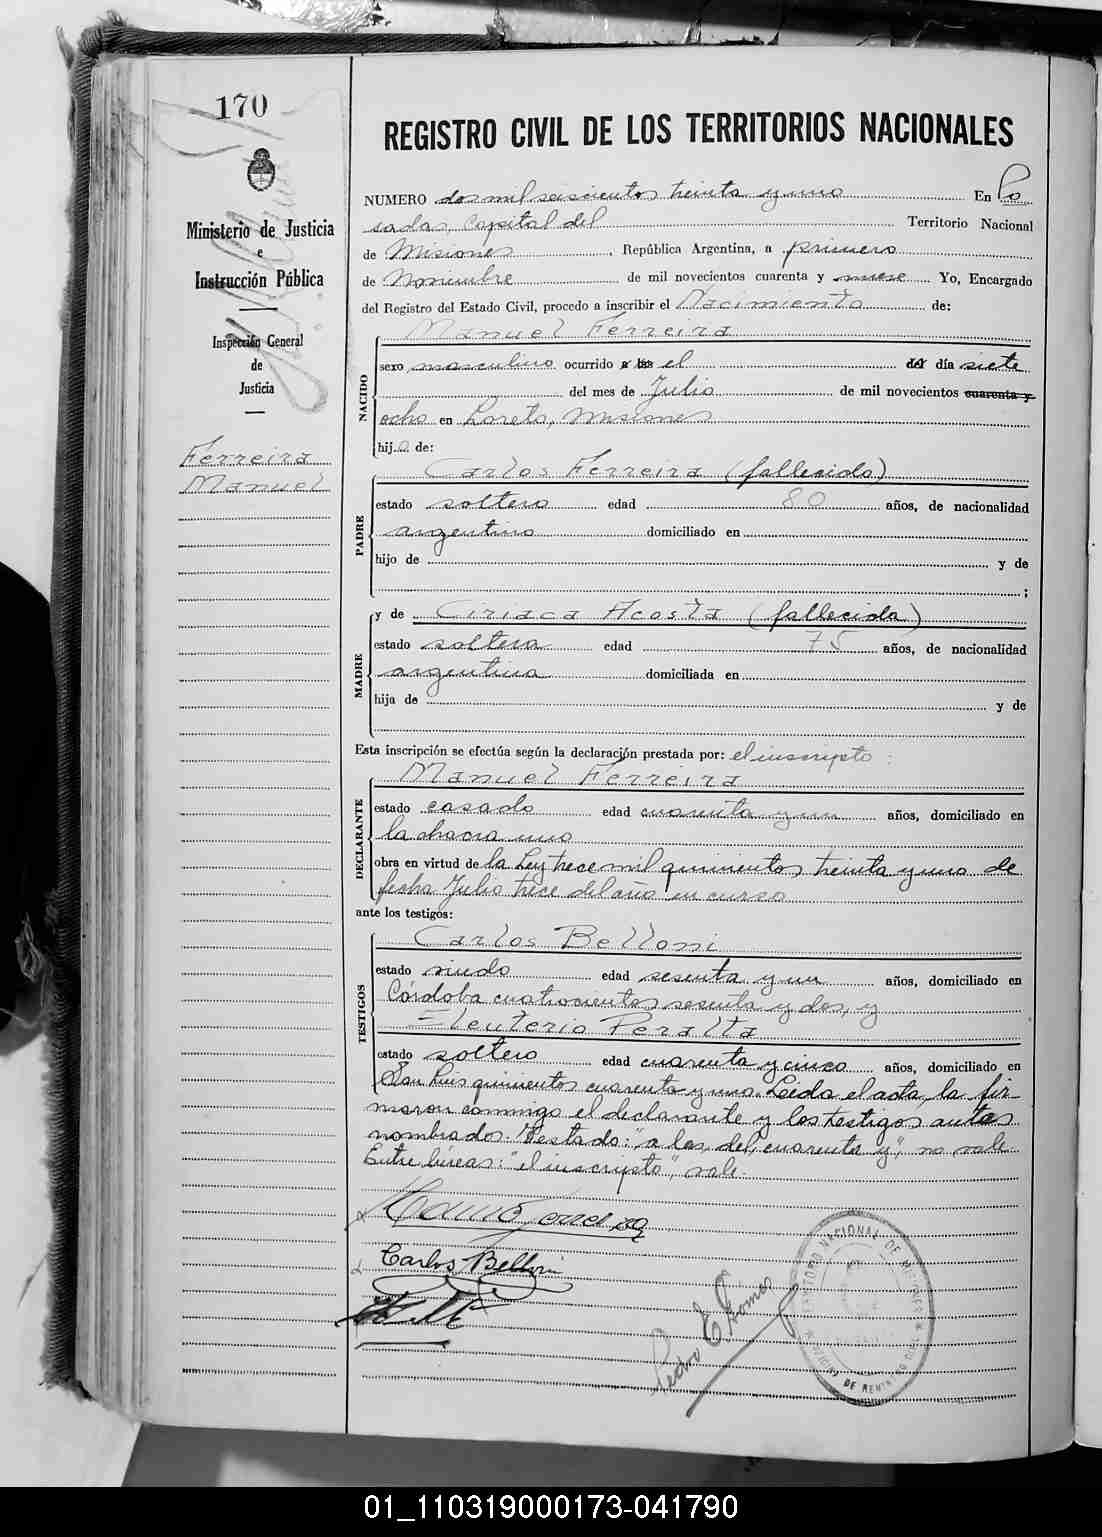 170
REGISTRO CIVIL DE LOS TERRITORIOS NACIONALES
Ministerio de Justicia
e
Instrucción Pública
Inspección General
de
Justicia
Ferreira
Manuel
NUMERO dos mil seiscientos treinta y uno En Po
sadas, Capital del Territorio Nacional
de Misiones, República Argentina, a primero
de Noviembre de mil novecientos cuarenta y nueve Yo, Encargado
del Registro del Estado Civil, procedo a inscribir el Nacimiento de:
Manuel Ferreira
NACIDO
sexo masculino ocurrido a las el del día siete
del mes de Julio de mil novecientos cuarenta y
ocho en Loreto, Misiones
hijo de:
Carlos Ferreira (fallecido)
PADRE
estado soltero edad 80 años, de nacionalidad
argentino domiciliado en
hijo de y de
;
y de Ciriaca Acosta (fallecida)
MADRE
estado soltera edad 75 años, de nacionalidad
argentina domiciliada en
hija de y de
Esta inscripción se efectúa según la declaración prestada por: el inscripto:
Manuel Ferreira
DECLARANTE
estado casado edad cuarenta y un años, domiciliado en
la chacra uno
obra en virtud de la Ley trece mil quinientos treinta y uno de
fecha Julio trece del año en curso
ante los testigos:
Carlos Belloni
TESTIGOS
estado viudo edad sesenta y un años, domiciliado en
Córdoba cuatrocientos sesenta y dos, y
Eleuterio Peralta
estado soltero edad cuarenta y cinco años, domiciliado en
San Luis quinientos cuarenta y uno. Leida el acta, la fir-
maron conmigo el declarante y los testigos antes
nombrados. Testado: "a las, del, cuarenta y", no vale
Entre líneas: "el inscripto", vale.
Carlos Belloni
Pedro E. Gómez
TERRITORIO NACIONAL DE MISIONES
01_110319000173-041790